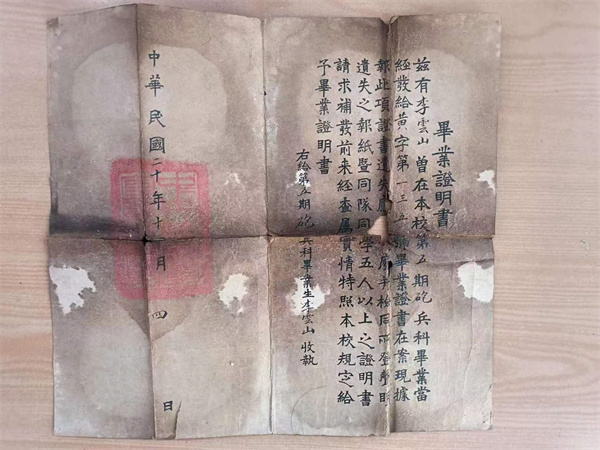 畢業證明書
茲有李雲山曾在本校第五期砲兵科畢業當
經發給黃字第一三五 號畢業證書在案現據
報此項證書遺失 登聲明
遺失之報紙暨同隊同學五人以上之證明書
請求補發前來經查屬實情特照本校規定給
予畢業證明書
右給第五期砲兵科畢業生李雲山收執
中華民國二十年十 月四日